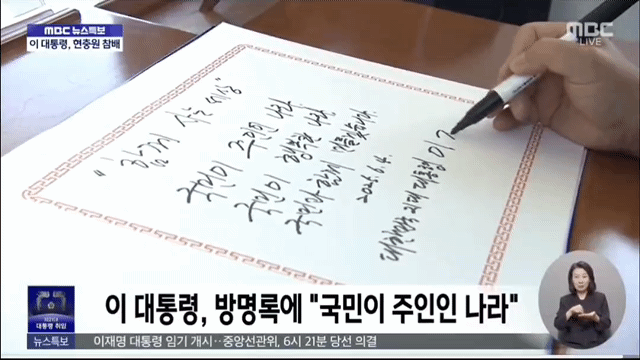 MBC 뉴스특보
이 대통령, 현충원 참배
MBC
LIVE
"함께 사는 세상"
국민이 주인인 나라
국민이 행복한 나라
국민과 함께 만들겠습니다.
2025. 6. 4.
대한민국 21대 대통령 이ㄱ
제21대
대통령 취임
이 대통령, 방명록에 "국민이 주인인 나라"
뉴스특보
이재명 대통령 임기 개시…중앙선관위, 6시 21분 당선 의결